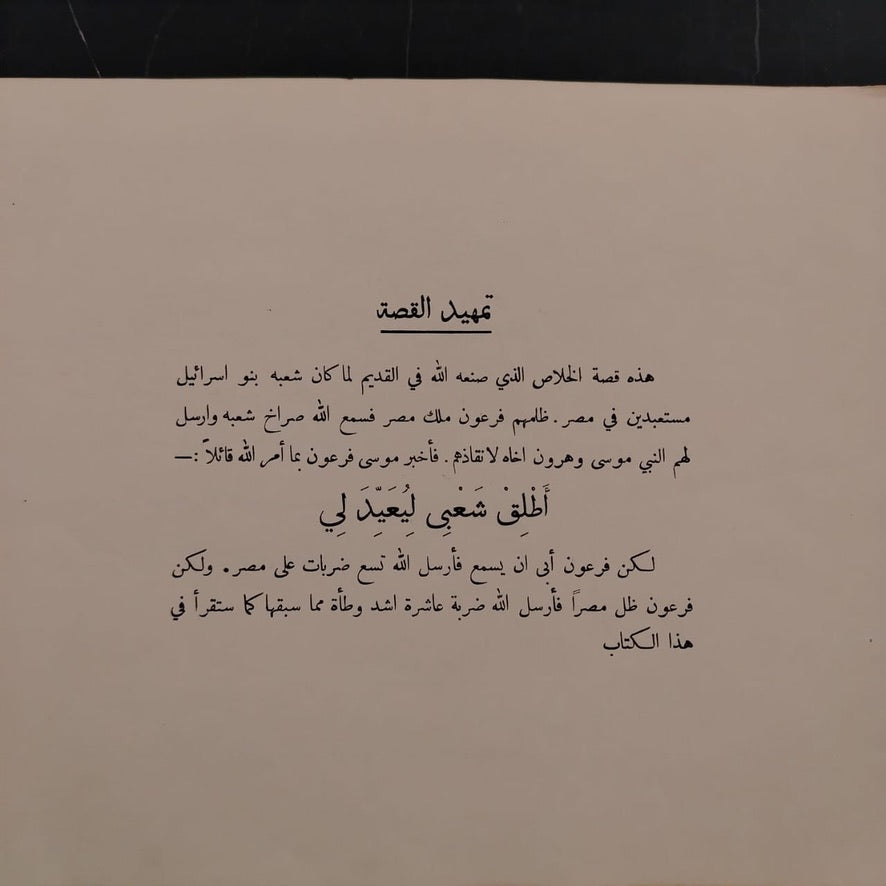 تمهيد القصة
هذه قصة الخلاص الذي صنعه الله في القديم لما كان شعبه بنو اسرائيل
مستعبدين في مصر. ظلمهم فرعون ملك مصر فسمع الله صراخ شعبه وارسل
لهم النبي موسى وهرون اخاه لانقاذهم. فأخبر موسى فرعون بما أمر الله قائلاً :—
أَطْلِقْ شَعْبِى لِيُعَيِّدَ لِي
لكن فرعون أبى ان يسمع فأرسل الله تسع ضربات على مصر. ولكن
فرعون ظل مصراً فأرسل الله ضربة عاشرة اشد وطأة مما سبقها كما ستقرأ في
هذا الكتاب